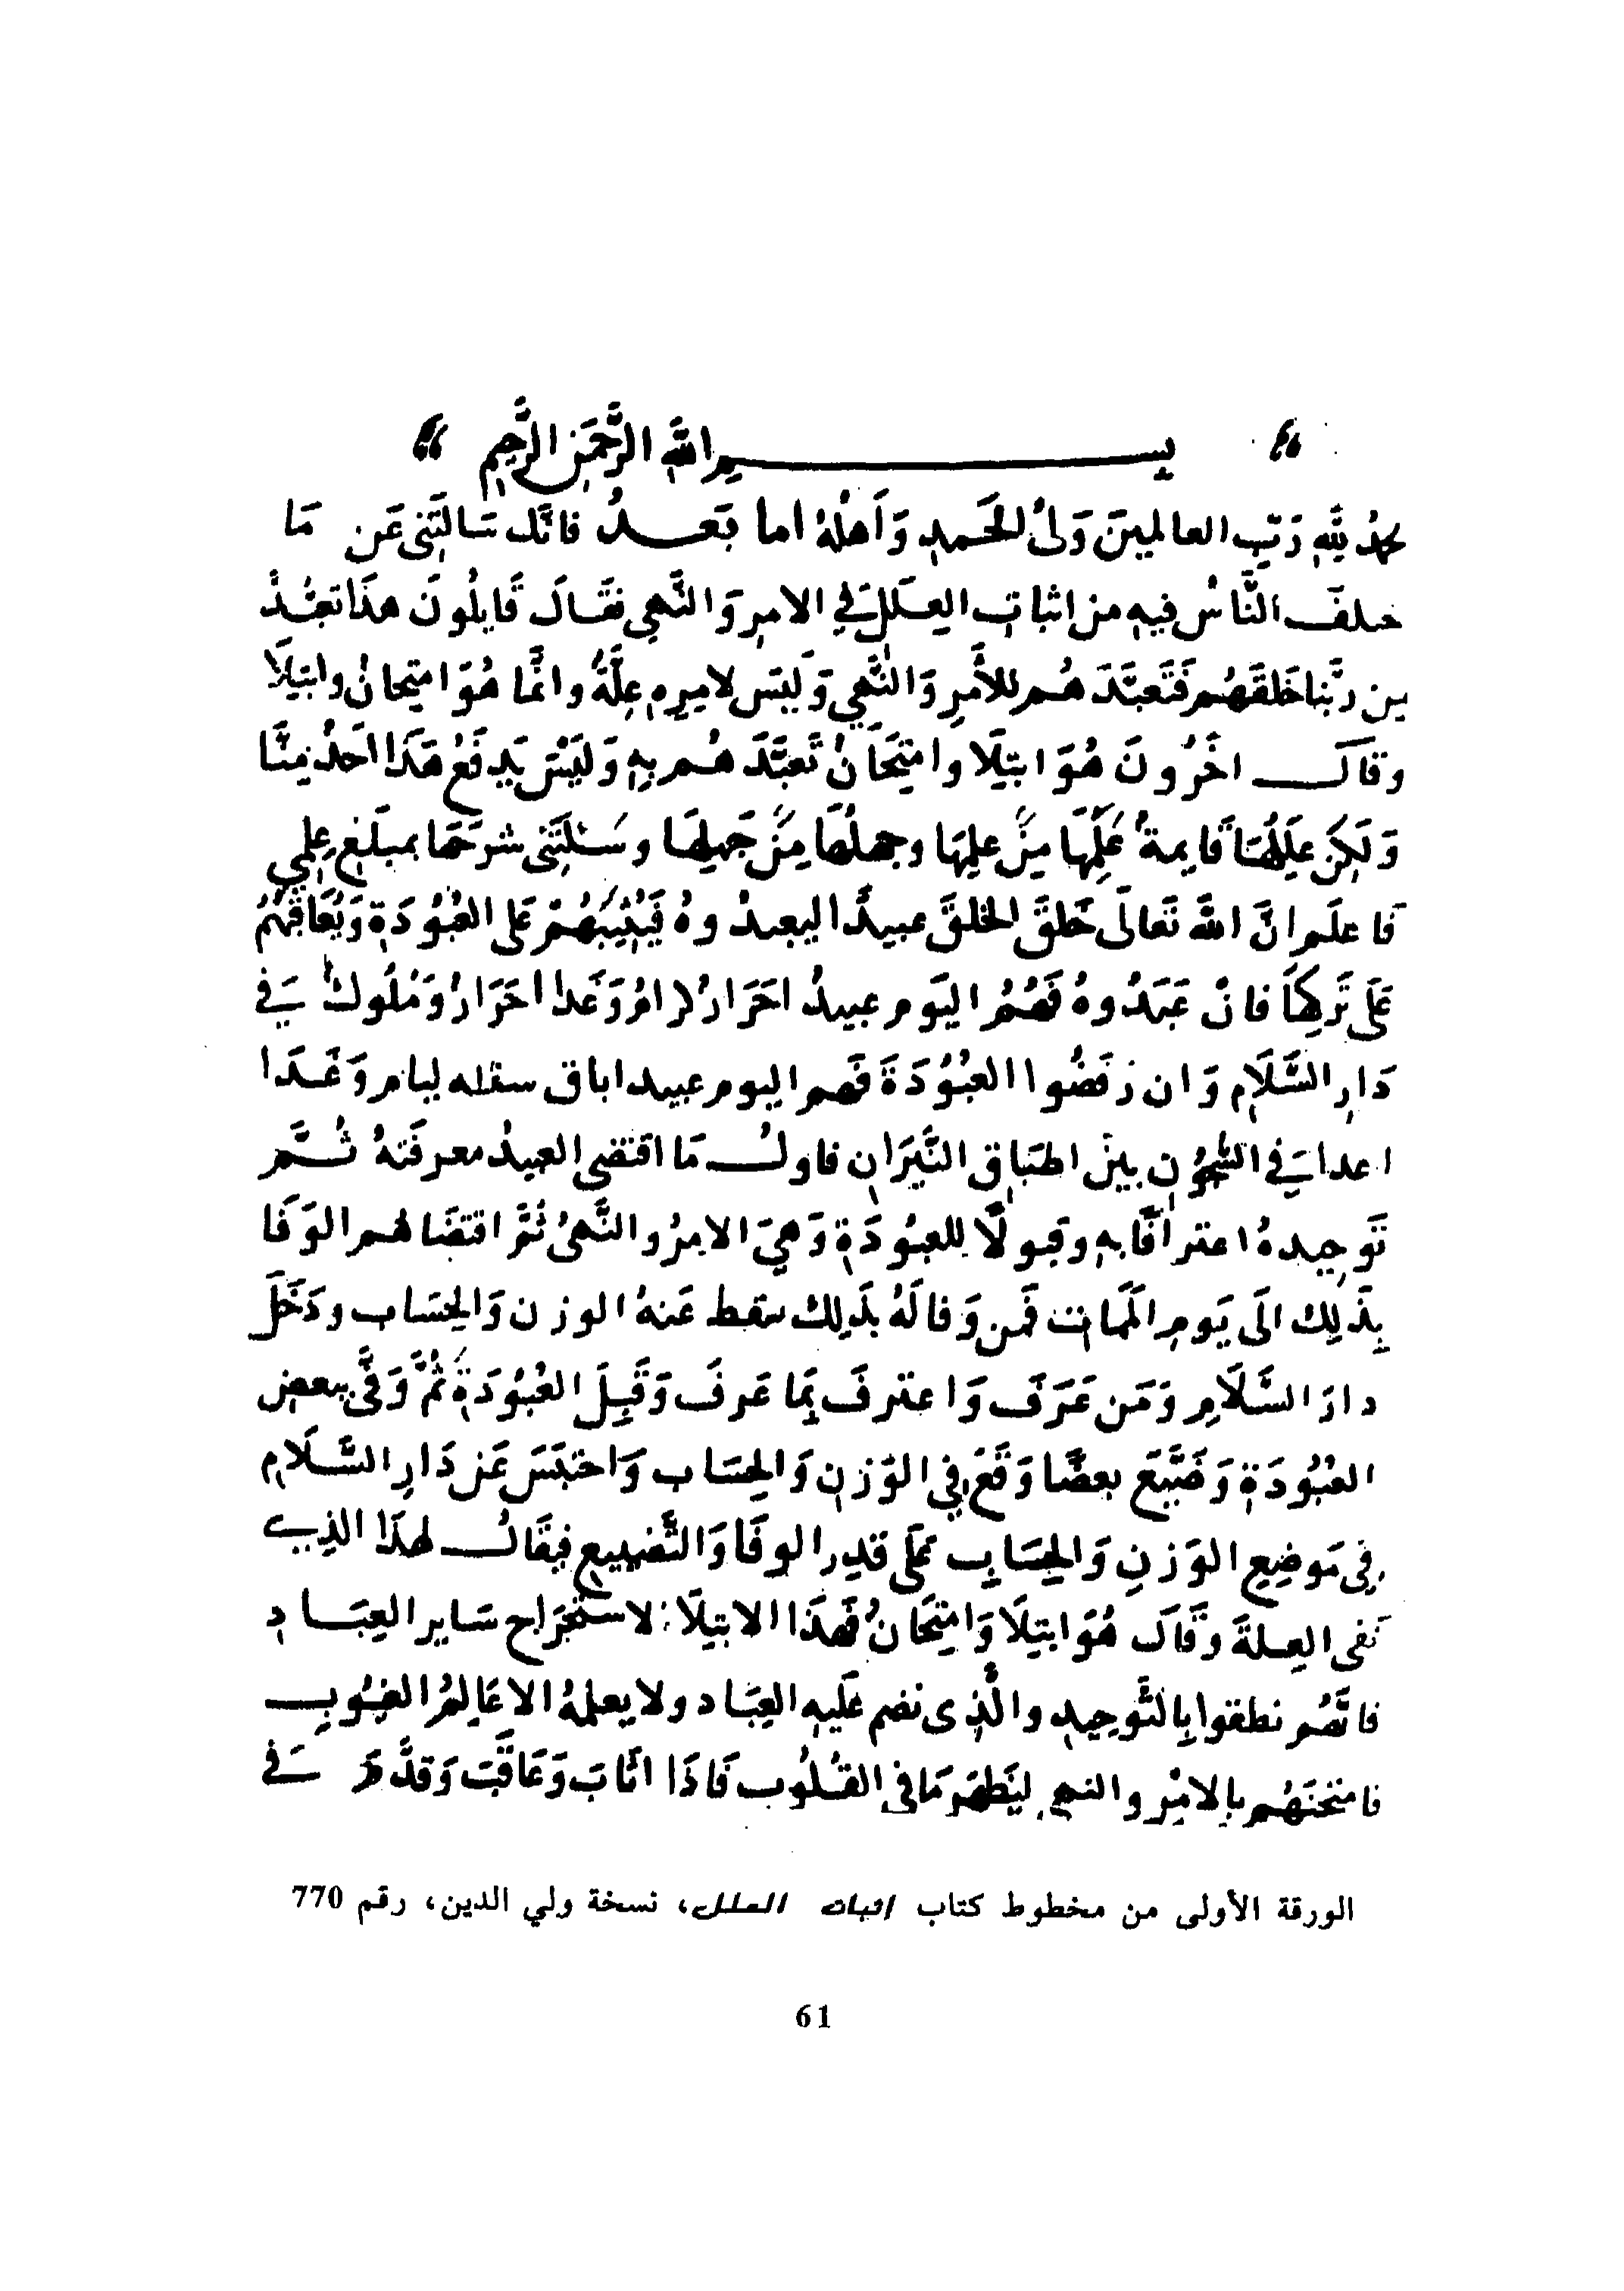 بسم الله الرَّحمَن الرَّحِيمِ
لله رَبِّ العالمِينَ وَلىُّ الحَمدِ وَأَهلُهُ اما بَعدُ فانَّك سَالتَنِى عَن مَا
النَّاسُ فيهِ من اثباتِ العِلَلِ فِي الامرِ وَالنَّهىِ فقَالَ قَايلُونَ هذَا تعبُّدٌ
رَبِّنا خَلقَهُم فَتَعبَّدَهُم للأَمرِ وَالنَّهي وَليَس لامرِهِ عِلَّةٌ وانَّما هُوَ امتِحانٌ وابتِلاَ
وقاَل اخَرُونَ هُوَ ابتِلَا وامتِحَانٌ تَعبَّدَهُم بِهِ وَليَسَ يَدفَعُ هَذَا احَدٌ مِنَّا
وَلَكِن عِلَلُهَا قَايمةٌ عَلِمَهَا مَن علِمَهَا وجهلهَا مَن جَهِلَهَا وسَئلتَنِى شرحَهَا بمبلَغِ عِلمِي
فَاعلَم انَّ اللهَ تَعالَى خَلقَ الخَلقَ عبيدًا ليعبدُوهُ فَيُثِيبَهُم عَلى العُبُودَةِ وَيُعَاقِبَهُم
عَلَى تَركِهَا فانْ عَبَدُوهُ فَهُمُ اليَوم عبيدٌ احَرارٌ كرامٌ وَغَدا احَرَارٌ وَمُلُوكٌ فِي
دَارِ السَّلَامِ وَان رَفَضُوا العُبُودَةَ فَهم اليوم عبيد اباق سفله ليام وَغَدَا
اعدا فِي السُّجُونِ بينَ اطبَاقِ النِّيَرانِ فاولُ مَا اقتضى العبيدُ معرفَتهُ ثُمَّ
تَوحِيدهُ اعترافًا بِهِ وقبولًا للعبُودَةِ وَهيَ الامرُ والنَّهىُ ثُمَّ اقتضَا لهم الوَفَا
بِذَلِك الَى يَومِ المَمات فَمن وَفا لَهُ بذَلِك سقط عَنهُ الوزن وَالحِسَاب ودَخَلَ
دارَ السَّلَامِ وَمَن عَرَفَ وَاعترفَ بِمَا عَرفَ وَقَبِلَ العُبُودَةَ ثُمَّ وَفَّى ببعضِ
العُبُودَةِ وَضَيَّعَ بعضًا وَقَعَ فِي الوَزنِ وَالحِسَاب وَاحتبَسَ عَن دَارِ السَّلَامِ
فِى مَوضِعِ الوَزنِ وَالحِسَابِ عَلَى قدرِ الوفَا وَالتَّضييعِ فيقَالُ لهذَا الذِي
نَفى العِلةَ وقَالَ هُوَ ابتِلَا وَامتِحَانٌ فهذَا الابتِلَا: لاستخرَاج سَاير العِبَادِ
فانَّهُم نطقوا بِالتَّوحِيدِ والَّذِى نضم عَليهِ العِبَاد ولا يعلمهُ الا عَالِمُ الغيُوبِ
فامتَحنَهُم بالامرِ والنهى ليَظهَر مَا فى القلُوب فَاذَا اثَابَ وَعَاقَبَ وَقدَّمَ فِي
الورقة الأولى من مخطوط كتاب اثبات العلل، نسخة ولي الدين، رقم 770
61